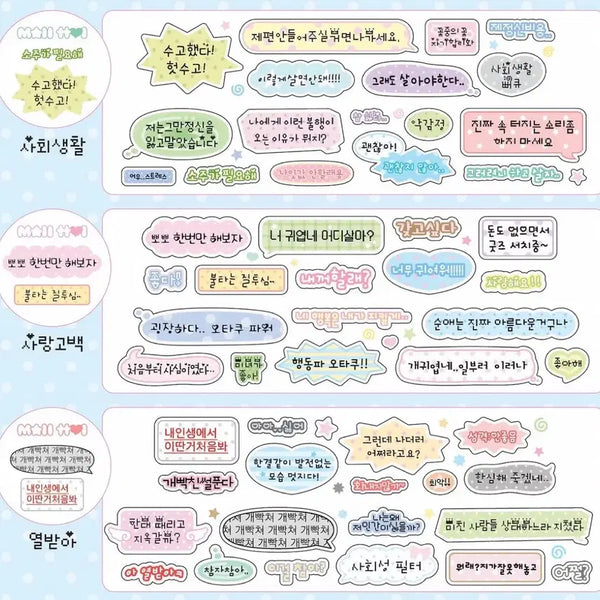 Mall Hoi
소주가 필요해
수고했다!
헛수고!
사회생활
수고했다!
헛수고!
제편만들어주실분면나가세요.
꽃중의 꽃
자기합리화
제정신비용..
이렇게살면안돼!!!!
그래도 살아야한다..
사회생활
뻐큐
저는그만정신을
잃고말았습니다
나에게 이런 불행이
오는 이유가 뭐지?
약감정
괜찮아!
괜찮지 않아..
진짜 속 터지는 소리좀
하지 마세요
어우..스트레스
소주가 필요해
나이값 안할래요
그러려니 하고 살자..
Mall Hoi
뽀뽀 한번만 해보자
불타는 질투심..
사랑고백
뽀뽀 한번만 해보자
너 귀엽네 어디살아?
갖고싶다
돈도 없으면서
굿즈 서치중~
좋다!
불타는 질투심..
내꺼할래?
너무 귀여워!!!!!
사랑해요!!
굉장하다.. 오타쿠 파워
네 행복은 내가 지킬게..
순애는 진짜 아름다운거구나
처음부터 진심이였다..
미녀가
좋아!
행동파 오타쿠!!
개귀엽네..일부러 이러나
좋아해
Mall Hoi
개빡쳐 개빡쳐 개빡쳐
내인생에서
이딴거처음봐
열받아
내인생에서
이딴거처음봐
아아..싫어
한결같이 발전없는
모습 멋지다!
그런데 나더러
어쩌라고요?
성격:안좋음
개빡치쎌푼다
화내지말까~
최악!!
한심해 죽겠네..
한대 때리고
지옥갈까?
개빡쳐 개빡쳐 개빡쳐
나는왜
저인간이싫을까?
미친 사람들 상대하느라 지쳤음
아 열받아ㅋ
참자참아..
이걸 참아?
사회성 필터
뭐래?지가잘못해놓고
어쩔?